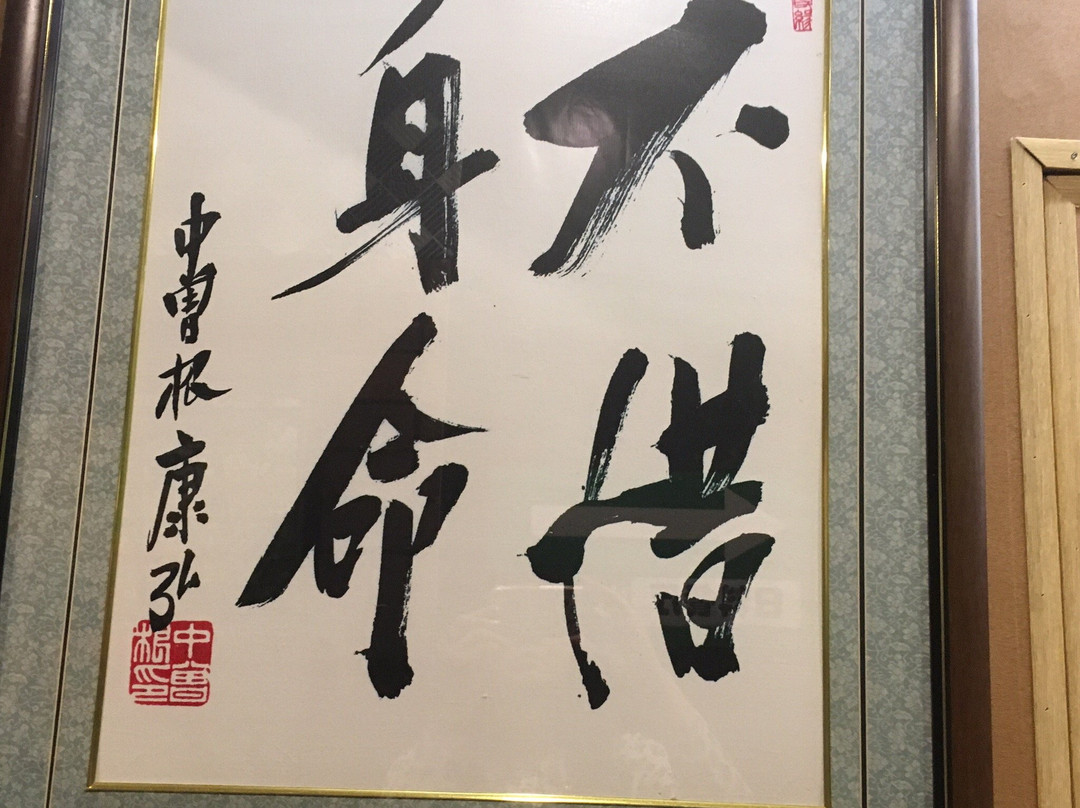 不惜
身命
中曽根康弘
中曽根印